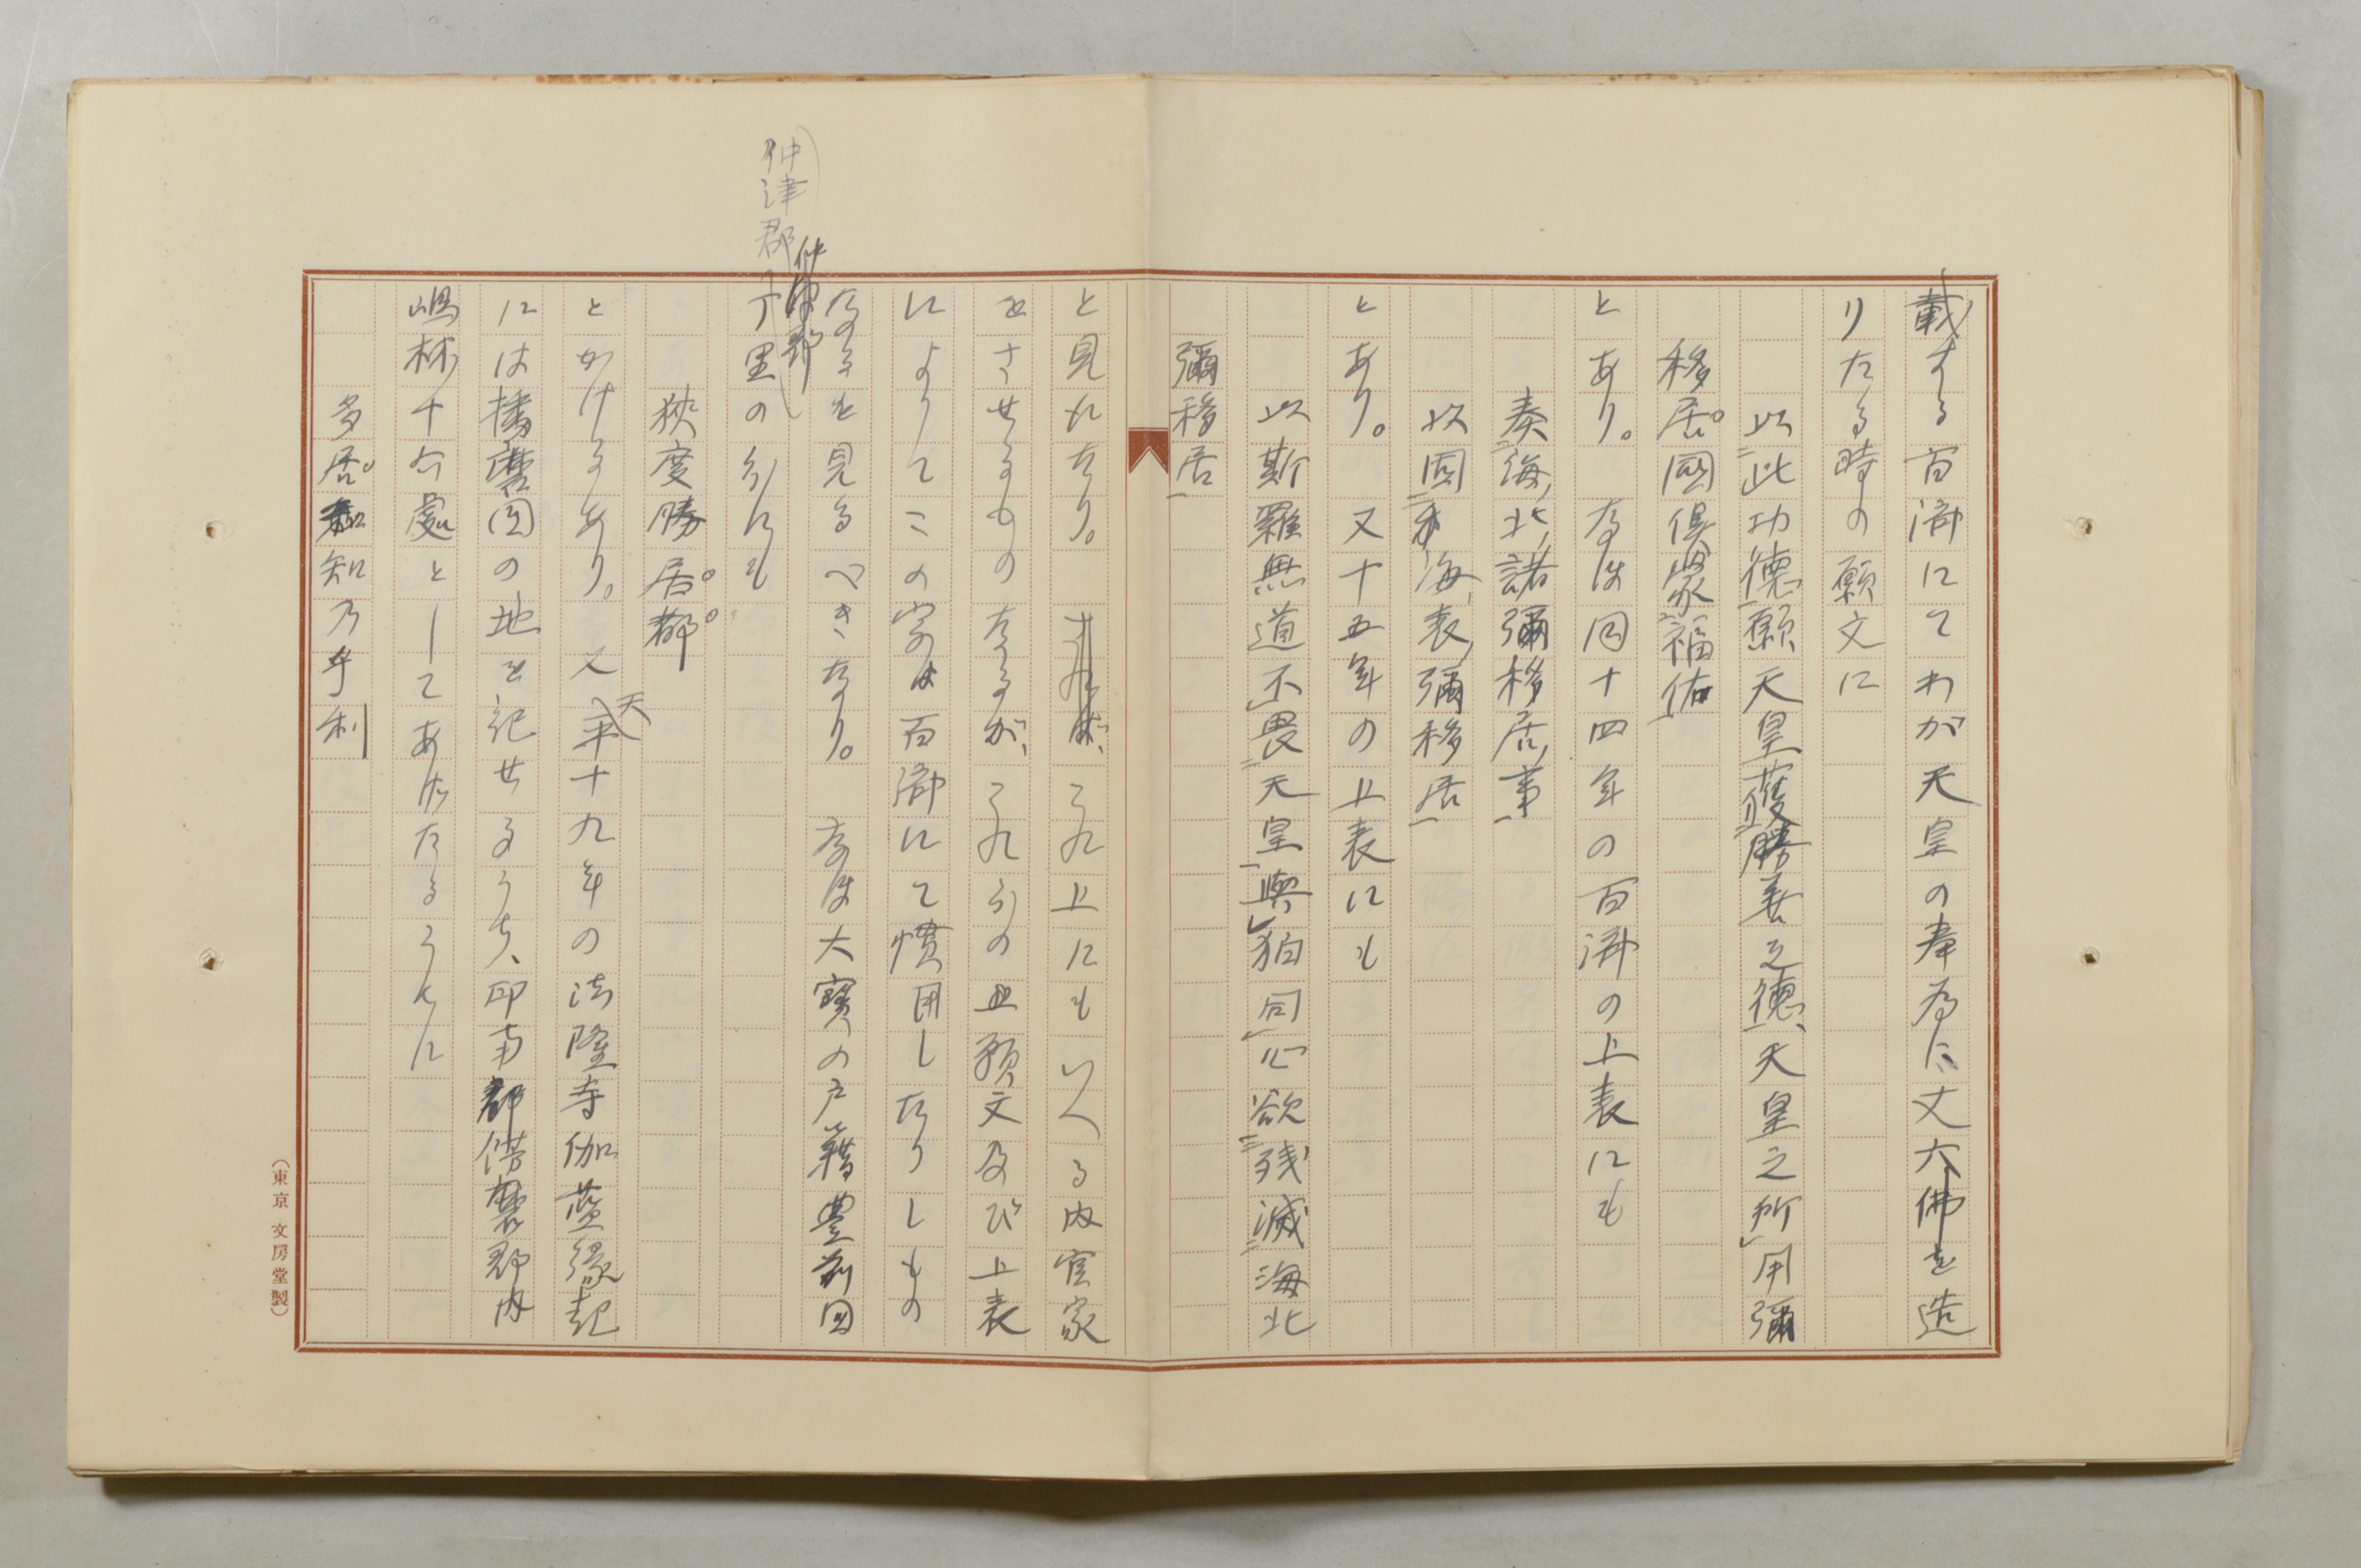 載する百済にてわが天皇の奉為に丈六佛を造
りたる時の願文に
以此功徳願天皇獲勝善之徳、天皇之所用彌
移居國倶蒙福佑
とあり。なほ同十四年の百済の上表にも
奏海北諸彌移居事
以固海表彌移居
とあり。又十五年の上表にも
以斯羅無道不畏天皇與狛同心欲残滅海北
彌移居
と見えたり。これ上にもいへる内官家
をさせるものなるが、これらの願文及び上表
によりてこの字は百済にて慣用したりしもの
なるを見るべきなり。なほ大寶の戸籍豊前国
仲津郡
仲津郡
丁里の分にも
狭度勝居都
とかけるあり。又天平十九年の法隆寺伽藍縁起
には播磨国の地を記せるうち、印南郡餝磨郡内
嶋林十六處としてあげたるうちに
多居知乃乎利
(東京 文房堂製)